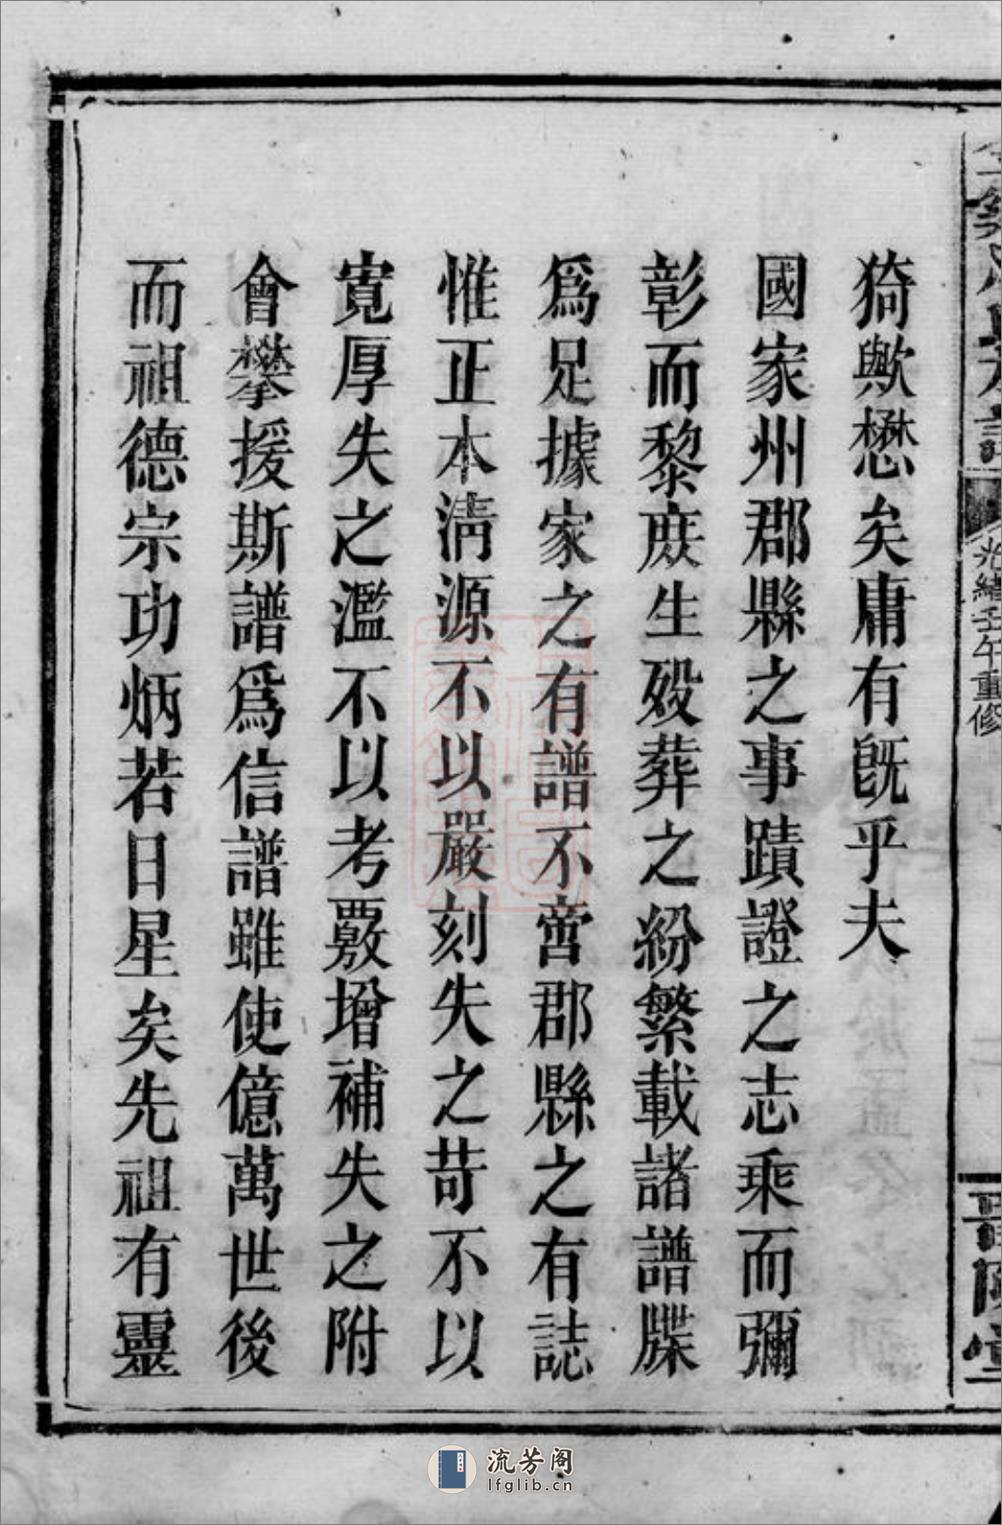 光緒壬午重修
猗歟懋矣庸有旣乎夫
國家州郡縣之事蹟證之志乘而彌
彰而黎庶生歿葬之紛繁載諸譜牒
爲足據家之有譜不啻郡縣之有誌
惟正本淸源不以嚴刻失之苛不以
寬厚失之濫不以考覈增補失之附
會攀援斯譜爲信譜雖使億萬世後
而祖德宗功炳若日星矣先祖有靈
流芳阁
lfglib.cn